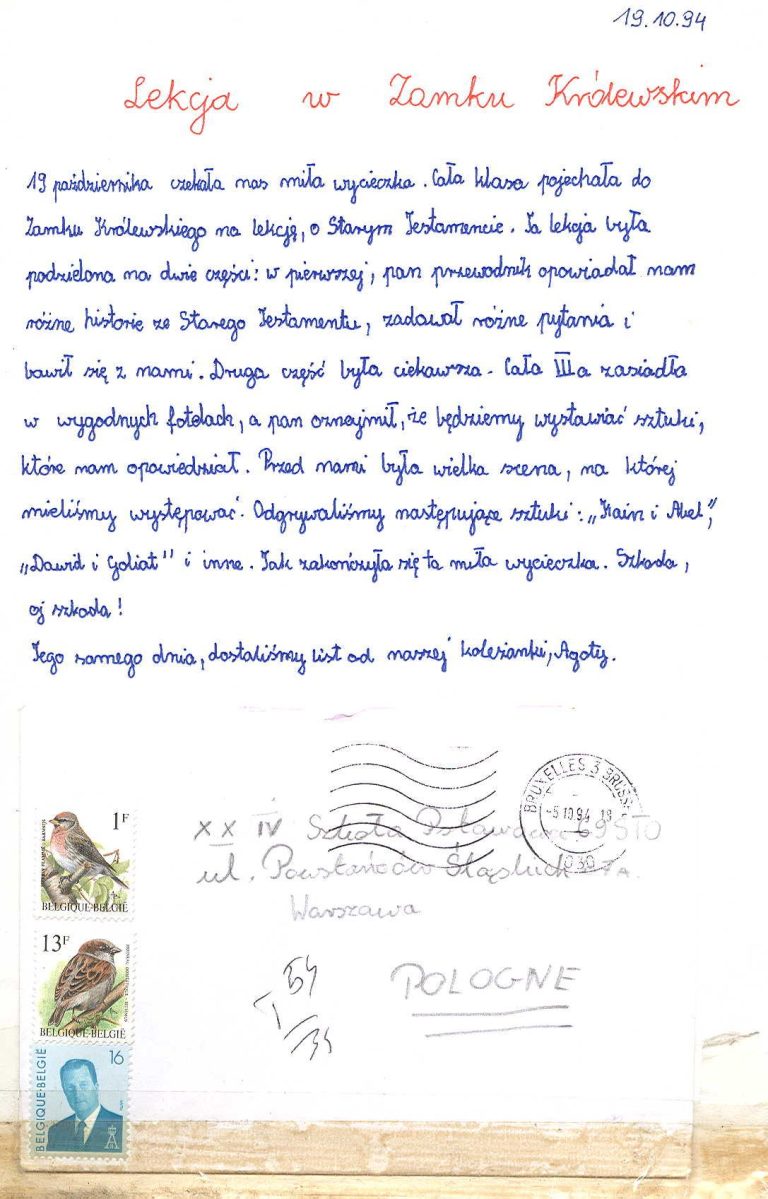 19.10.94
Lekcja w Zamku Królewskim
19 października czekała nas miła wycieczka. Cała klasa pojechała do
Zamku Królewskiego na lekcję, o Starym Testamencie. Ta lekcja była
podzielona na dwie części: w pierwszej, pan przewodnik opowiadał nam
różne historie ze Starego Testamentu, zadawał różne pytania i
bawił się z nami. Druga część była ciekawsza. Cała IIIa zasiadła
w wygodnych fotelach, a pan oznajmił, że będziemy wystawiać sztuki,
które nam opowiedział. Przed nami była wielka scena, na której
mieliśmy występować. Odgrywaliśmy następujące sztuki: „Kain i Abel",
„Dawid i Goliat" i inne. Tak zakończyła się ta miła wycieczka. Szkoda,
oj szkoda!
Tego samego dnia, dostaliśmy list od naszej koleżanki, Agaty.
BRUXELLES 3
-5 10 94
1030
XX IV Szkoła
ul. Powstańców Śląskich 7A.
Warszawa
POLOGNE
1F
BELGIQUE-BELGIË
13F
BELGIQUE-BELGIË
16
BELGIQUE-BELGIË